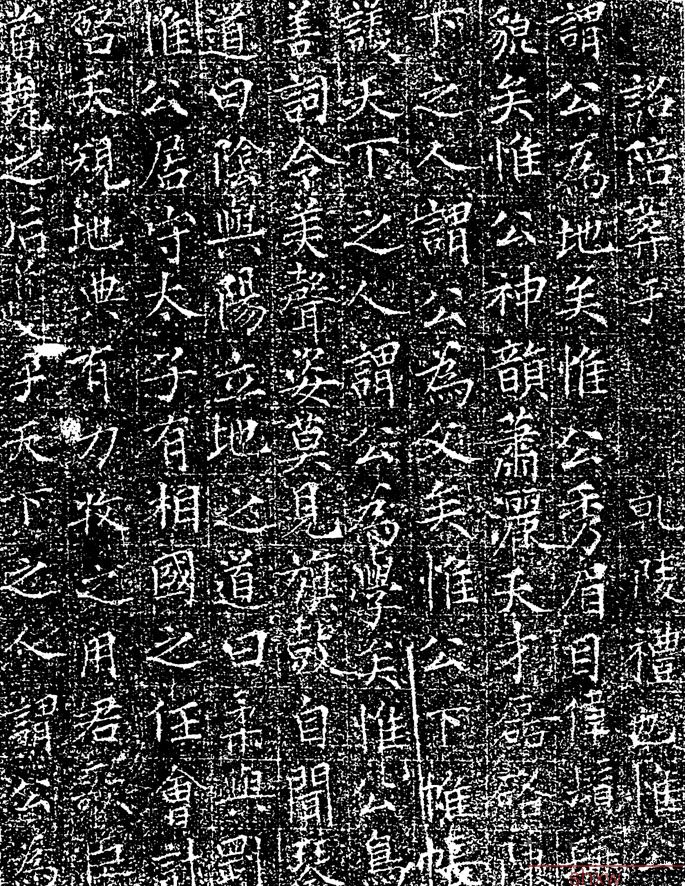 詔陪葬于乹陵禮也惟
謂公為地矣惟公秀眉目偉鬚
貌矣惟公神韻蕭灑天才磊落
下之人謂公為父矣惟公下帷帳
天下之人謂公為學矣惟公鳥
善詞令美聲姿莫見旗鼓自聞琴
道曰陰與陽立地之道曰柔與剛
惟公居守太子有相國之任會計
啓天視地典有刀牧之用君歌臣
當堯之后子天下之人謂公為